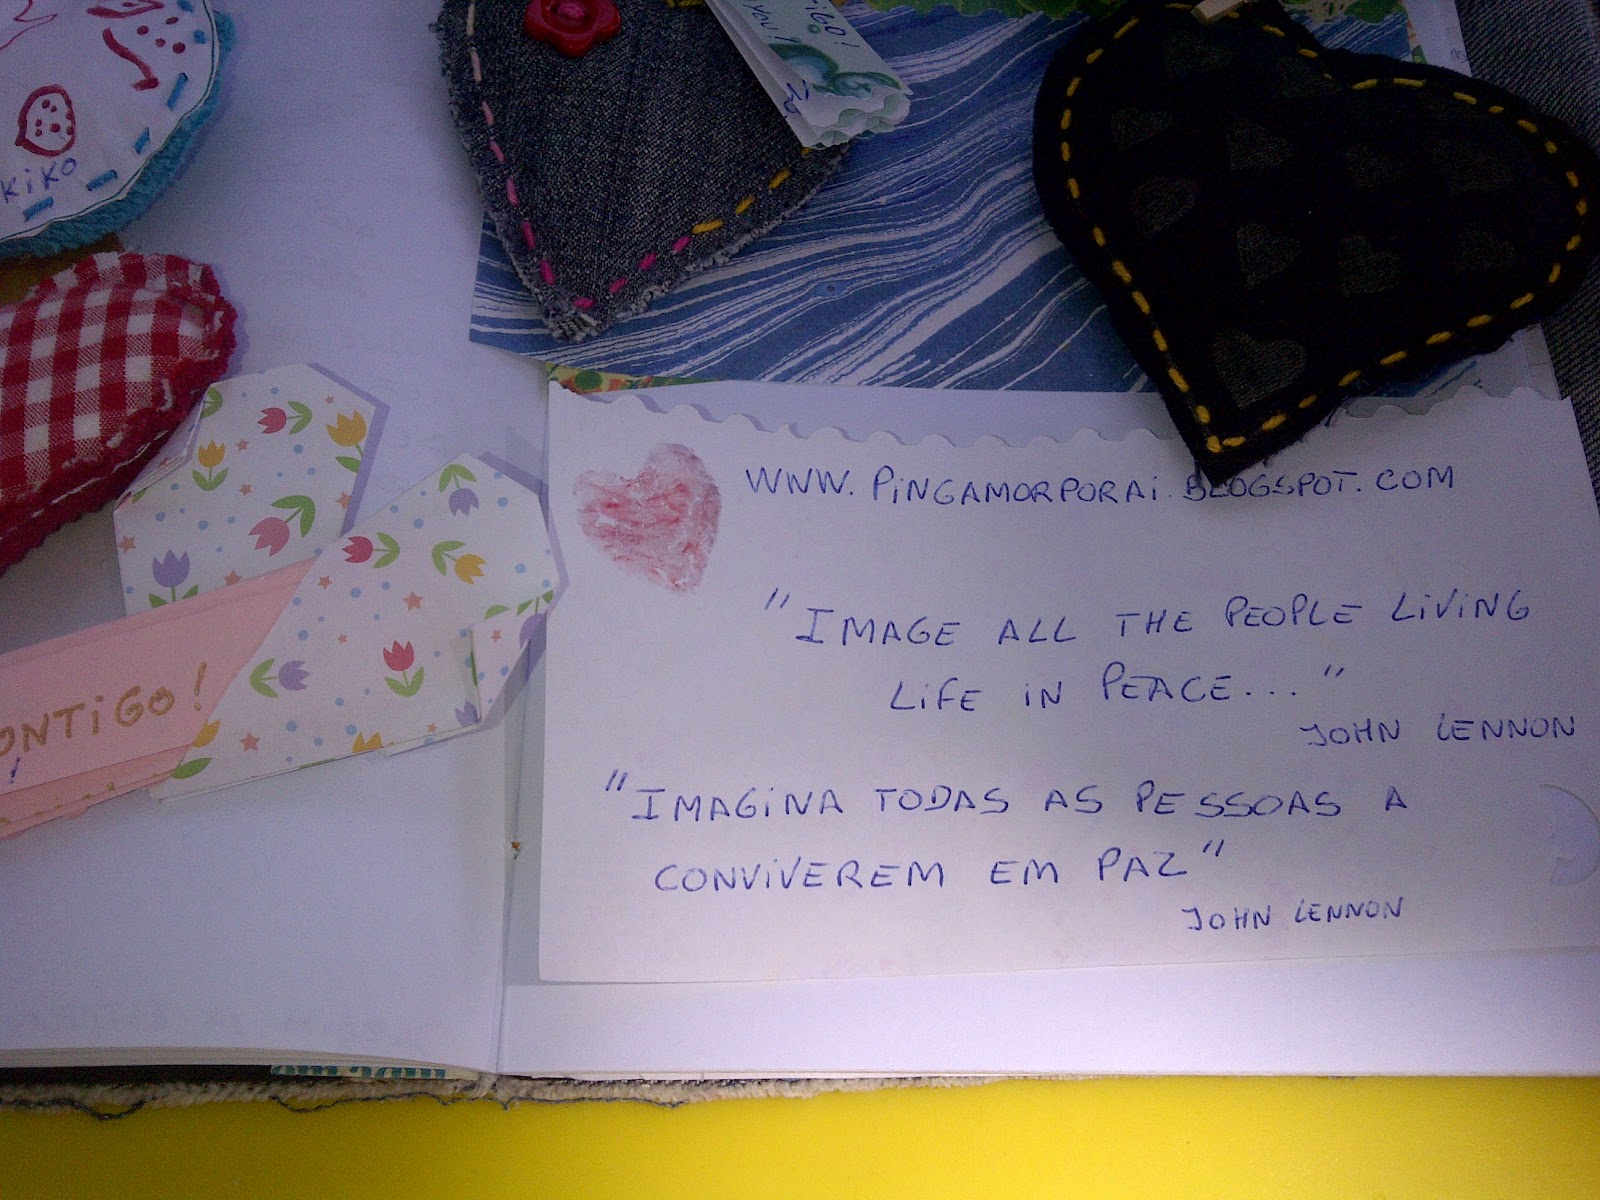 KiKO
iGO!
YOU!
WWW.PiNGAMORPORAi.BLOGSPOT.COM
"IMAGE ALL THE PEOPLE LiViNG
LiFE iN PEACE..."
JOHN LENNON
"IMAGiNA TODAS AS PESSOAS A
CONViVEREM EM PAZ"
JOHN LENNON
ONTiGO!
!